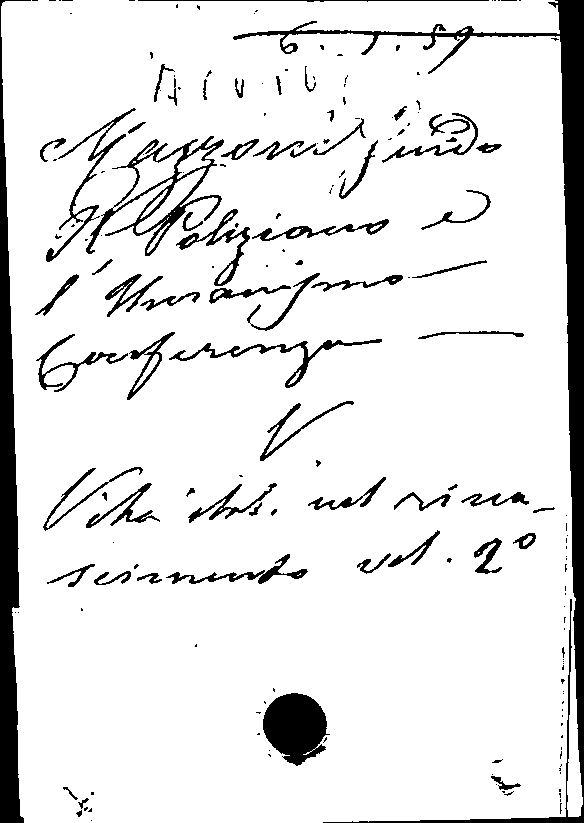 6. 1. 59
Mazzoni Guido
Il Poliziano e
l'Umanesimo
Conferenza —
V
Vita ital. nel rina-
scimento vol. 2º